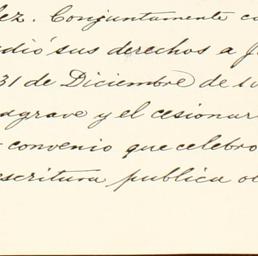 lez. Conjuntamente co
dió sus derechos a J
31 de Diciembre de 1
asgrave y el cesionar
convenio que celebro
escritura publica o